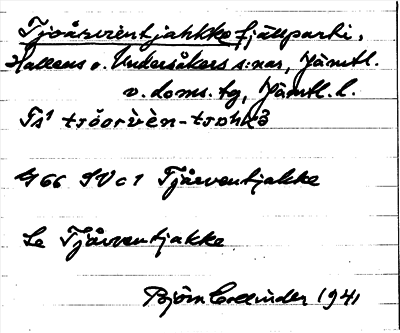 Tjoårvientjahkke fjällparti,
Hallens o. Undersåkers s:nar, Jämtl.
v. doms. tg, Jämtl. l.
Ts¹ tsöorvèn-tsahkə
G 66 SV c 1 Tjårventjakke
Se Tjårventjakke
Björn Collinder 1941